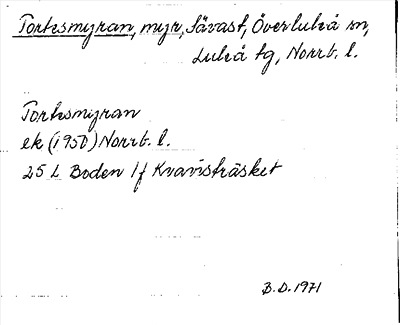 Torkesmyran, myr, Sävast, Överluleå sn,
Luleå tg, Norrb. l.
Torkesmyran
ek (1950) Norrb. l.
25 L Boden 1f Kvavisträsket
B.D. 1971